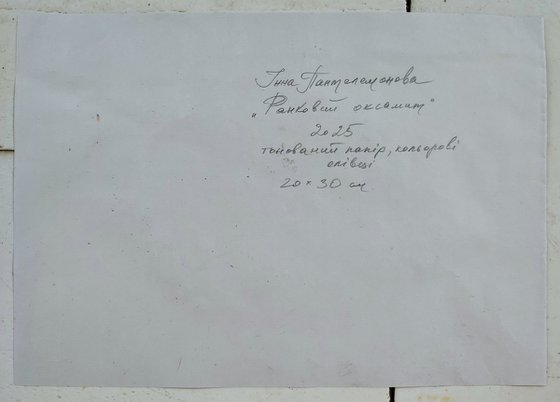 Інна Пантелемонова
„Ранковий оксамит"
2025
тонований папір, кольорові
олівці
20×30 см